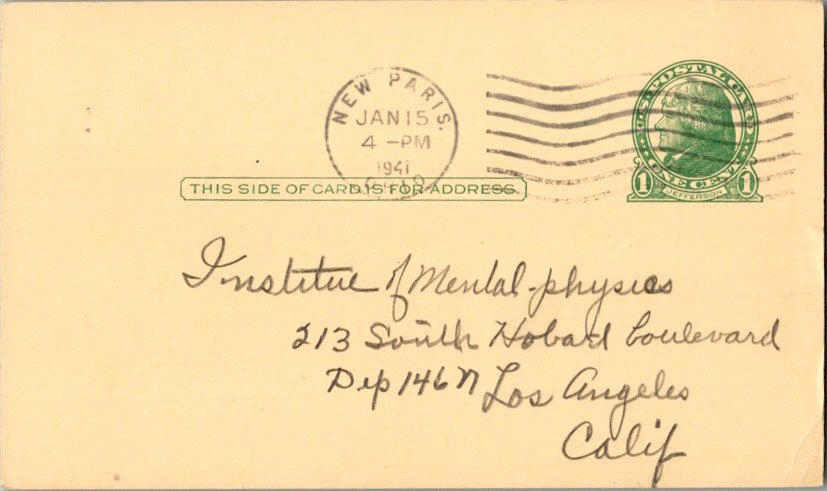 NEW PARIS.
JAN 15
4 -PM
1941
OHIO
U.S. POSTAL CARD
1 ONE CENT 1
JEFFERSON
THIS SIDE OF CARD IS FOR ADDRESS.
Institue of Mental-physics
213 South Hobart boulevard
Dep 146 N Los Angeles
Calif